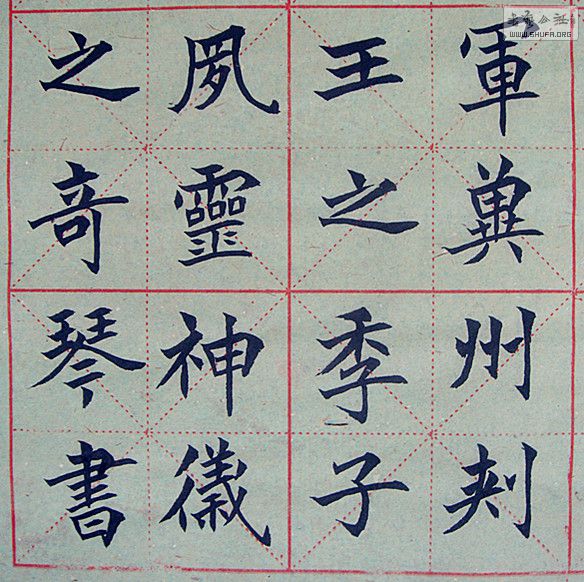 軍冀州刺
王之季子
夙靈神儀
之奇琴書
WWW.SHUFA.ORG